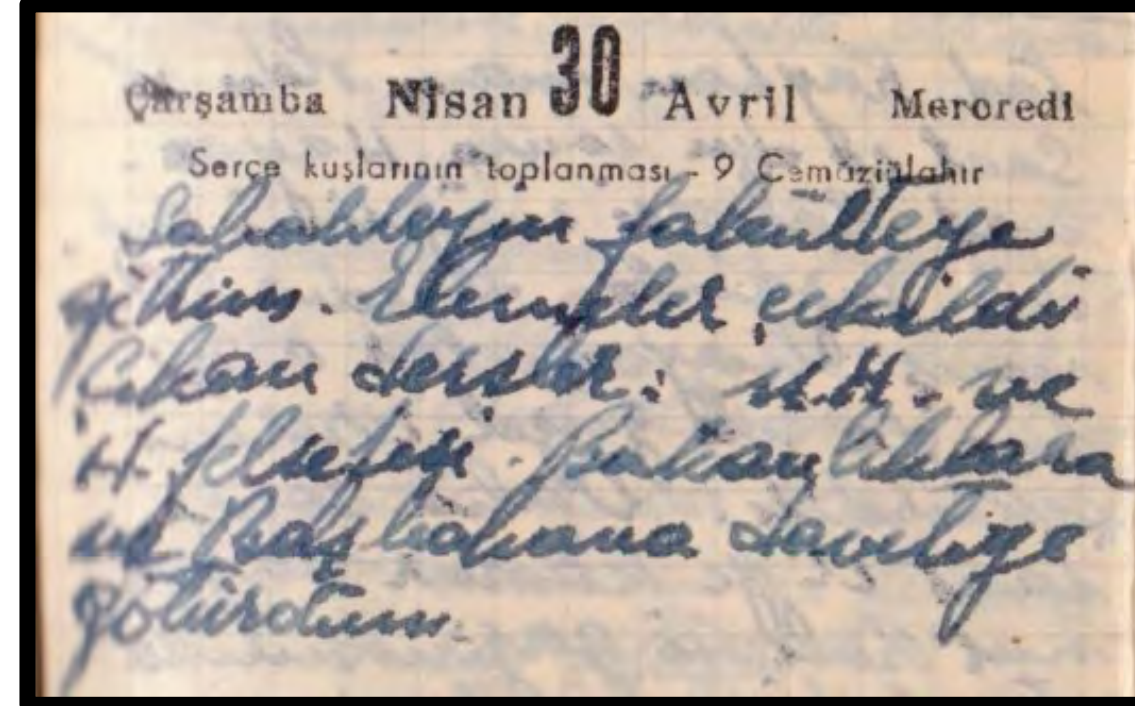 Çarşamba Nisan 30 Avril Mercredi
Serçe kuşlarının toplanması - 9 Cemaziülahır
Sabahleyin fakülteye
gittim. Elemeler çekildi
Çıkan dersler: ve
H. felsefesi. Bakanlıklara
ve Başbakana davetiye
götürdüm.